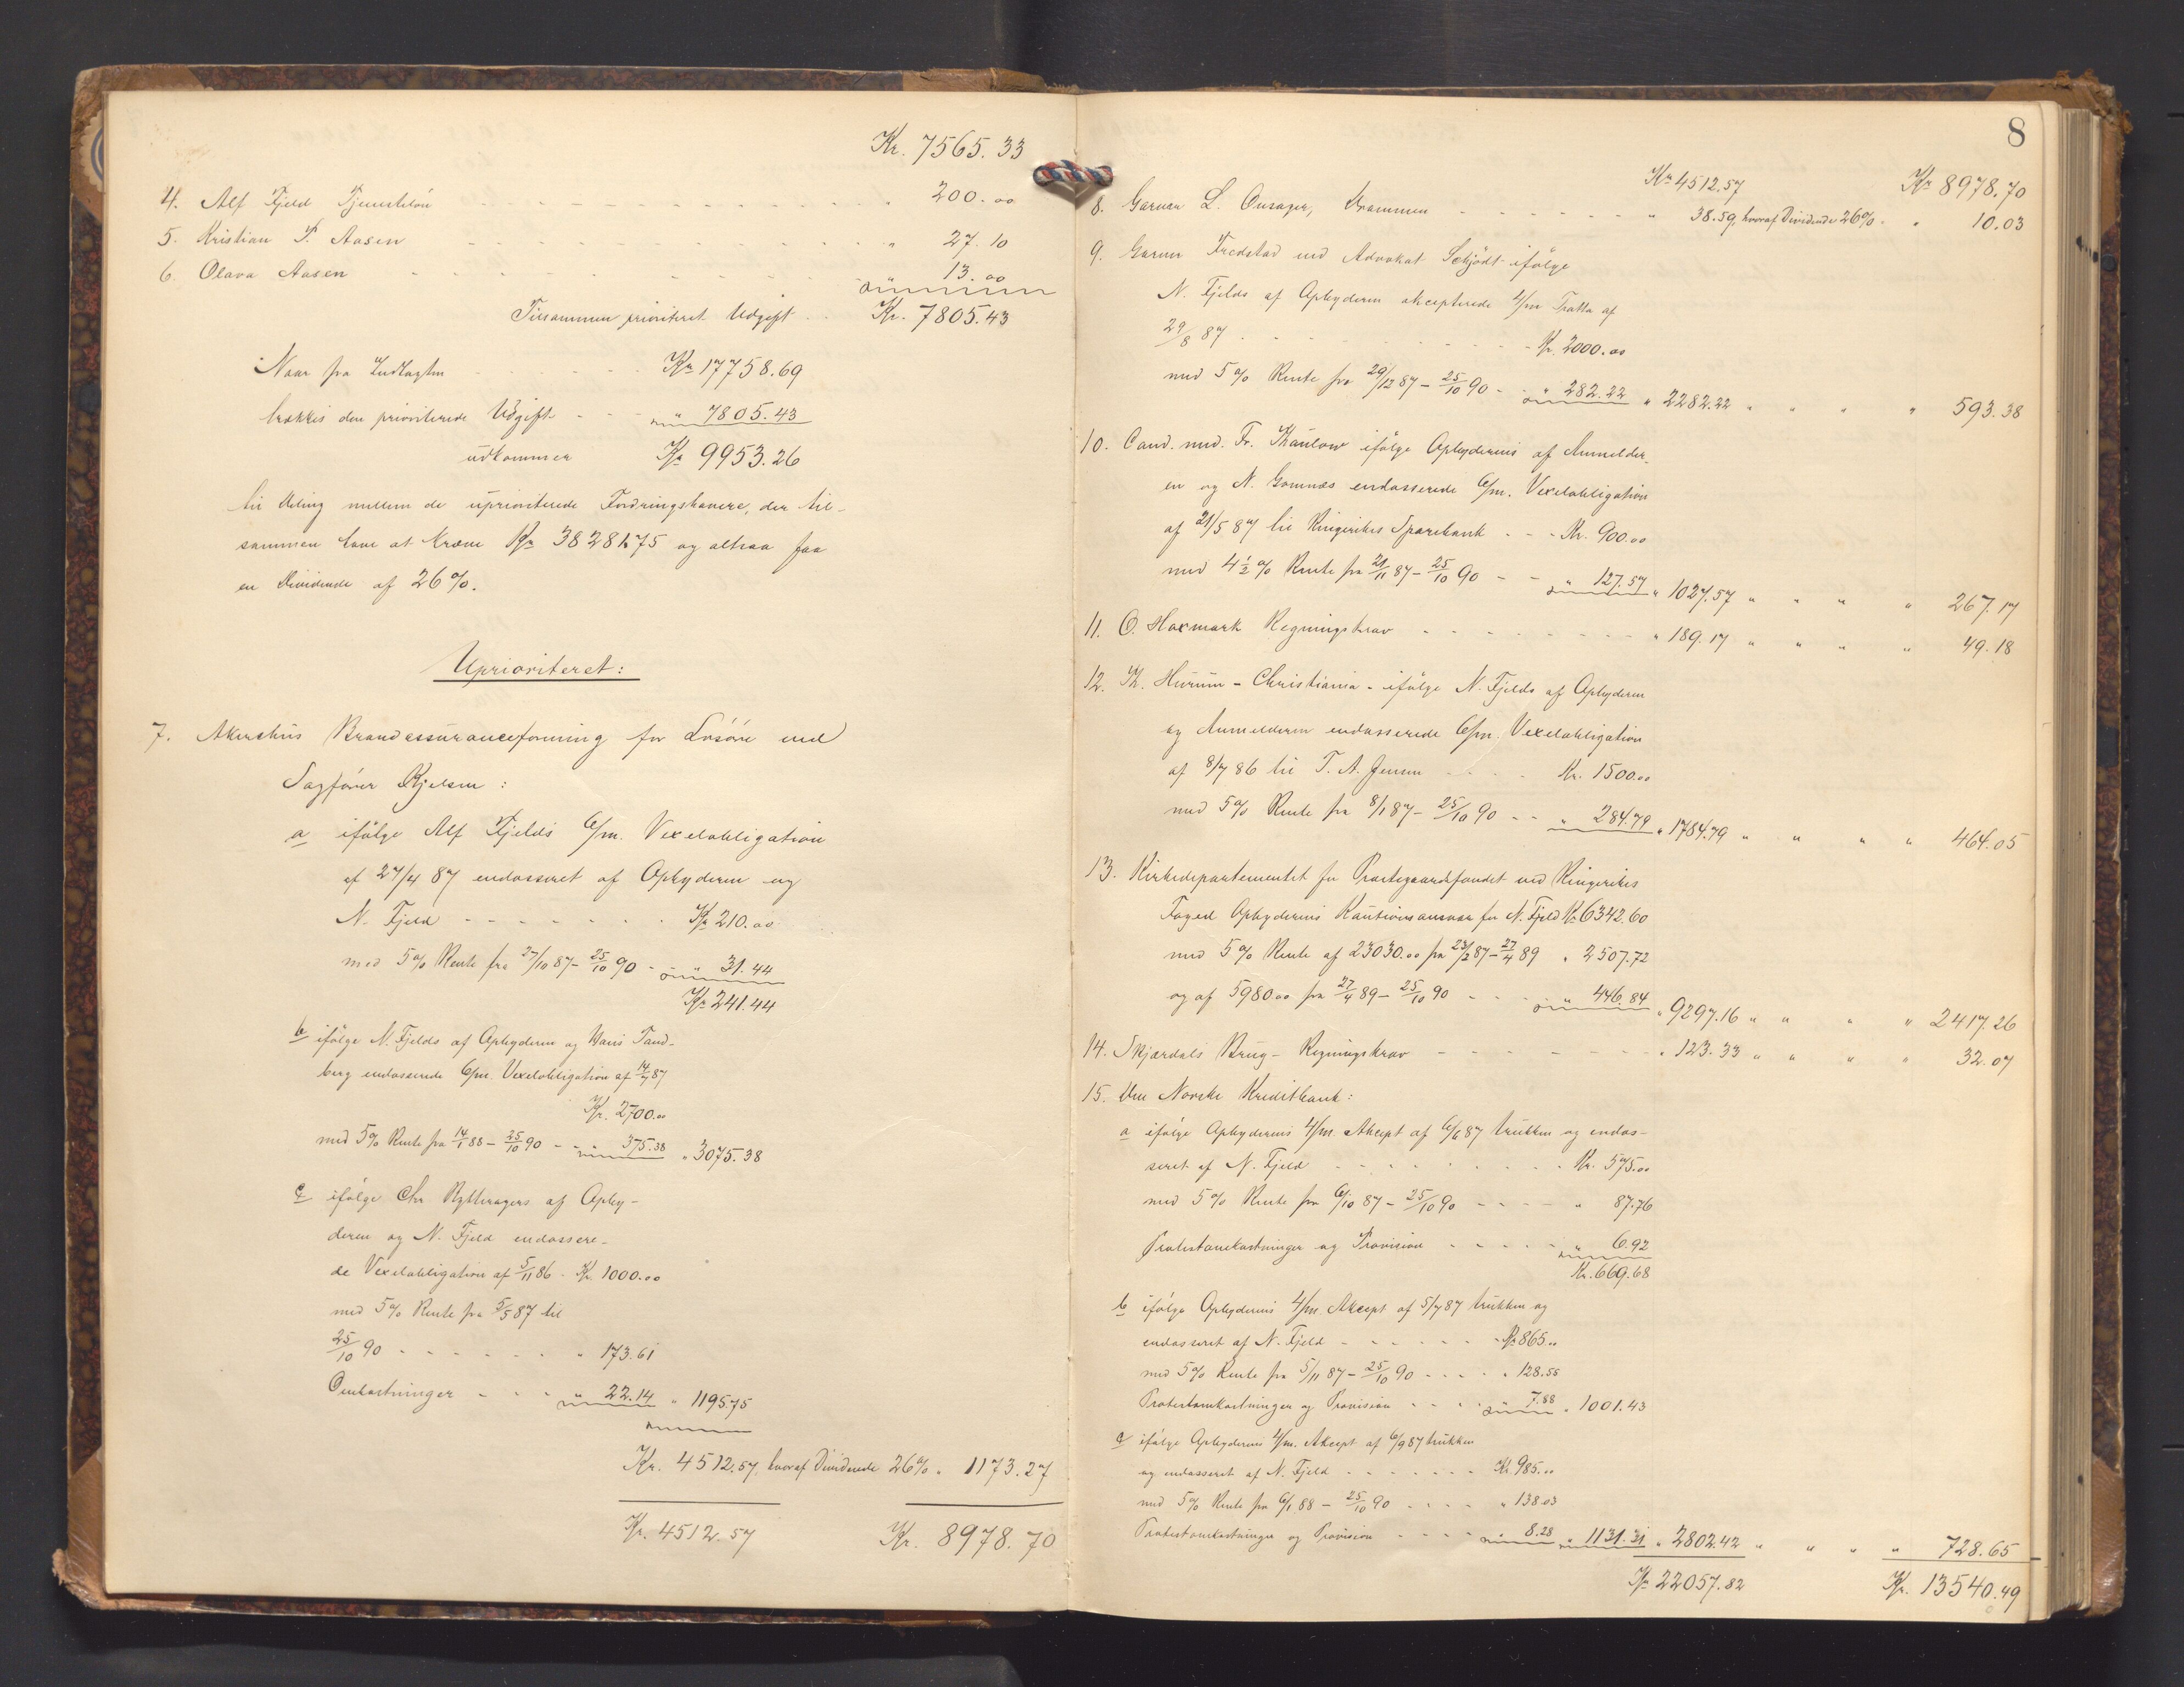 Kr. 7565.33
4. Alf Fjeld Tjenstelön " 200.00
5. Kristian P. Aasen " 27.10
6. Olava Aasen " 13.00
Tilsammen prioriteret Udgift Kr. 7805.43
Naar fra Indtægten Kr 17758.69
trækkes den prioriterede Udgift " 7805.43
udkommer Kr 9953.26
til Deling mellem de uprioriterede Fordringshavere, der til-
sammen have at kræve Kr 38281.75 og altsaa faa
en Dividende af 26%.
Uprioriteret:
7. Akershus Brandassuranceforening for Lösöre ved
Sagförer Kjelsen:
a ifölge Alf Fjelds 6/m. Vexelobligation
af 27/4 87 endosseret af Opbyderen og
N. Fjeld Kr 210.00
med 5% Rente fra 27/10 87 - 25/10 90 - " 31.44
Kr 241.44
b ifölge N. Fjelds af Opbyderen og Hans Tand-
berg endosserede 6/m. Vexelobligation af 14/7 87
Kr. 2700.00
med 5% Rente fra 14/1 88 - 25/10 90 - - " 375.38 " 3075.38
c ifölge Chr. Rytteragers af Opby-
deren og N. Fjeld endossere-
de Vexelobligation af 5/11 86 - Kr. 1000.00
med 5% Rente fra 5/5 87 til
25/10 90 " 173.61
Omkostninger " 22.14 " 1195.75
Kr. 4512.57, hvoraf Dividende 26% " 1173.27
Kr. 4512.57 Kr. 8978.70
8
Kr 4512.57 Kr 8978.70
8. Garver L. Onsager, Drammen " 38.59, hvoraf Dividende 26% " 10.03
9. Garver Fredstad ved Advokat Schjödt ifölge
N. Fjelds af Opbyderen akcepterede 4/m Tratta af
29/8 87 Kr. 2000.00
med 5% Rente fra 29/12 87 - 25/10 90 - " 282.22 " 2282.22 " " " " 593.38
10. Cand. med. Fr. Thaulow ifölge Opbyderens af Anmelder-
en og N. Gomnæs endosserede 6/m. Vexelobligation
af 21/5 87 til Ringerikes Sparebank - - - Kr. 900.00
med 4 1/2 % Rente fra 21/11 87 - 25/10 90 - - " 127.57 " 1027.57 " " " " 267.17
11. O. Hoxmark Regningskrav " 189.17 " " " " 49.18
12. Th. Hurum - Christiania - ifölge N. Fjelds af Opbyderen
og Anmelderen endosserede 6/m. Vexelobligation
af 8/7 86 til T. A. Jensen Kr. 1500.00
med 5% Rente fra 8/1 87 - 25/10 90 - - " 284.79 " 1784.79 " " " " 464.05
13. Kirkedepartementet for Præstegaardsfondet ved Ringerikes
Foged Opbyderens Kautionsansvar for N. Fjeld Kr 6342.60
med 5% Rente af 23030.00 fra 23/2 87 - 27/4 89 " 2507.72
og af 5980.00 fra 27/4 89 - 25/10 90 - - - " 446.84 " 9297.16 " " " " 2417.26
14. Skjærdals Brug - Regningskrav " 123.33 " " " " 32.07
15. Den Norske Kreditbank:
a ifölge Opbyderens 4/m. Akcept af 6/6 87 trukken og endos-
seret af N. Fjeld Kr. 575.00
med 5% Rente fra 6/10 87 - 25/10 90 - - - - " 87.76
Protestomkostninger og Provision " 6.92
Kr. 669.68
b ifölge Opbyderens 4/m. Akcept af 5/7 87 trukken og
endosseret af N. Fjeld - Kr 865.00
med 5% Rente fra 5/11 87 - 25/10 90 - - - - " 128.55
Protestomkostninger og Provision " 7.88 " 1001.43
c ifölge Opbyderens 4/m. Akcept af 6/9 87 trukken
og endosseret af N. Fjeld Kr. 985.00
med 5% Rente fra 6/1 88 - 25/10 90 " 138.03
Protestomkostninger og Provision " 8.28 " 1131.31 " 2802.42 " " " " 728.65
Kr 22057.82 Kr. 13540.49